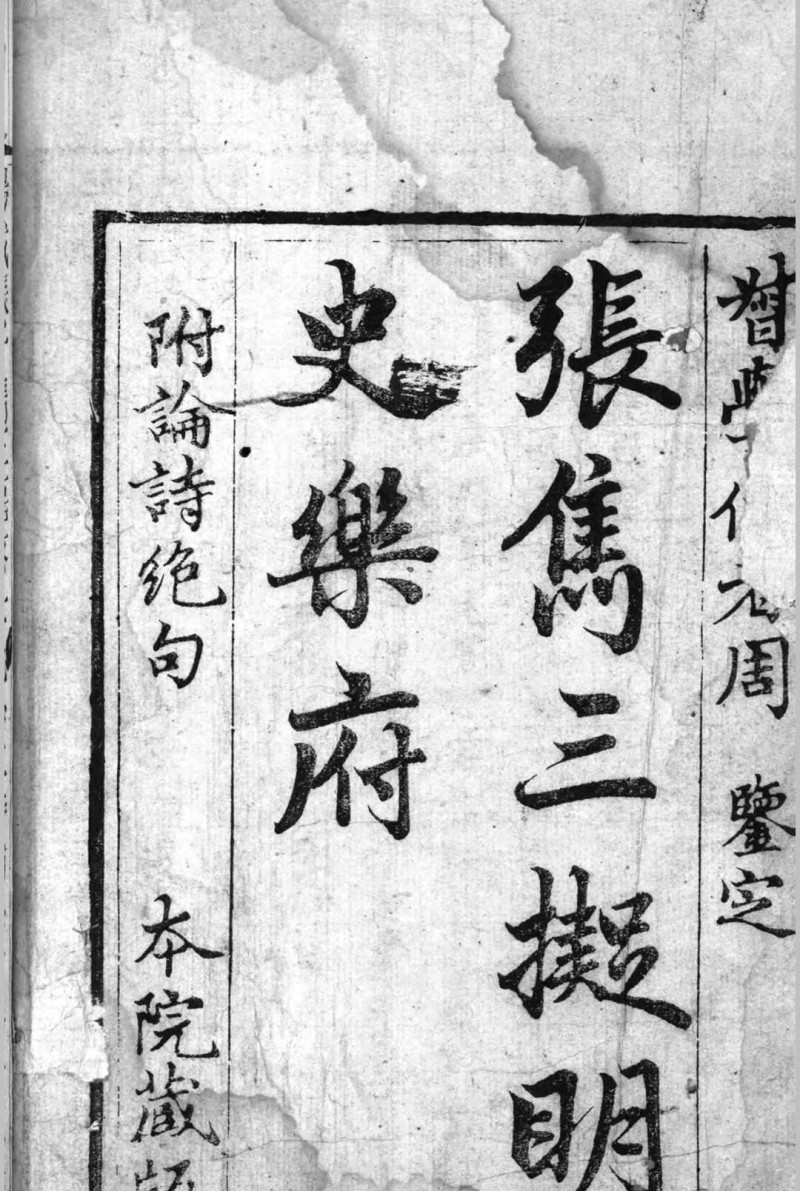 督學 元周 鑒定
張雋三擬明
史樂府
附論詩絕句 本院藏版